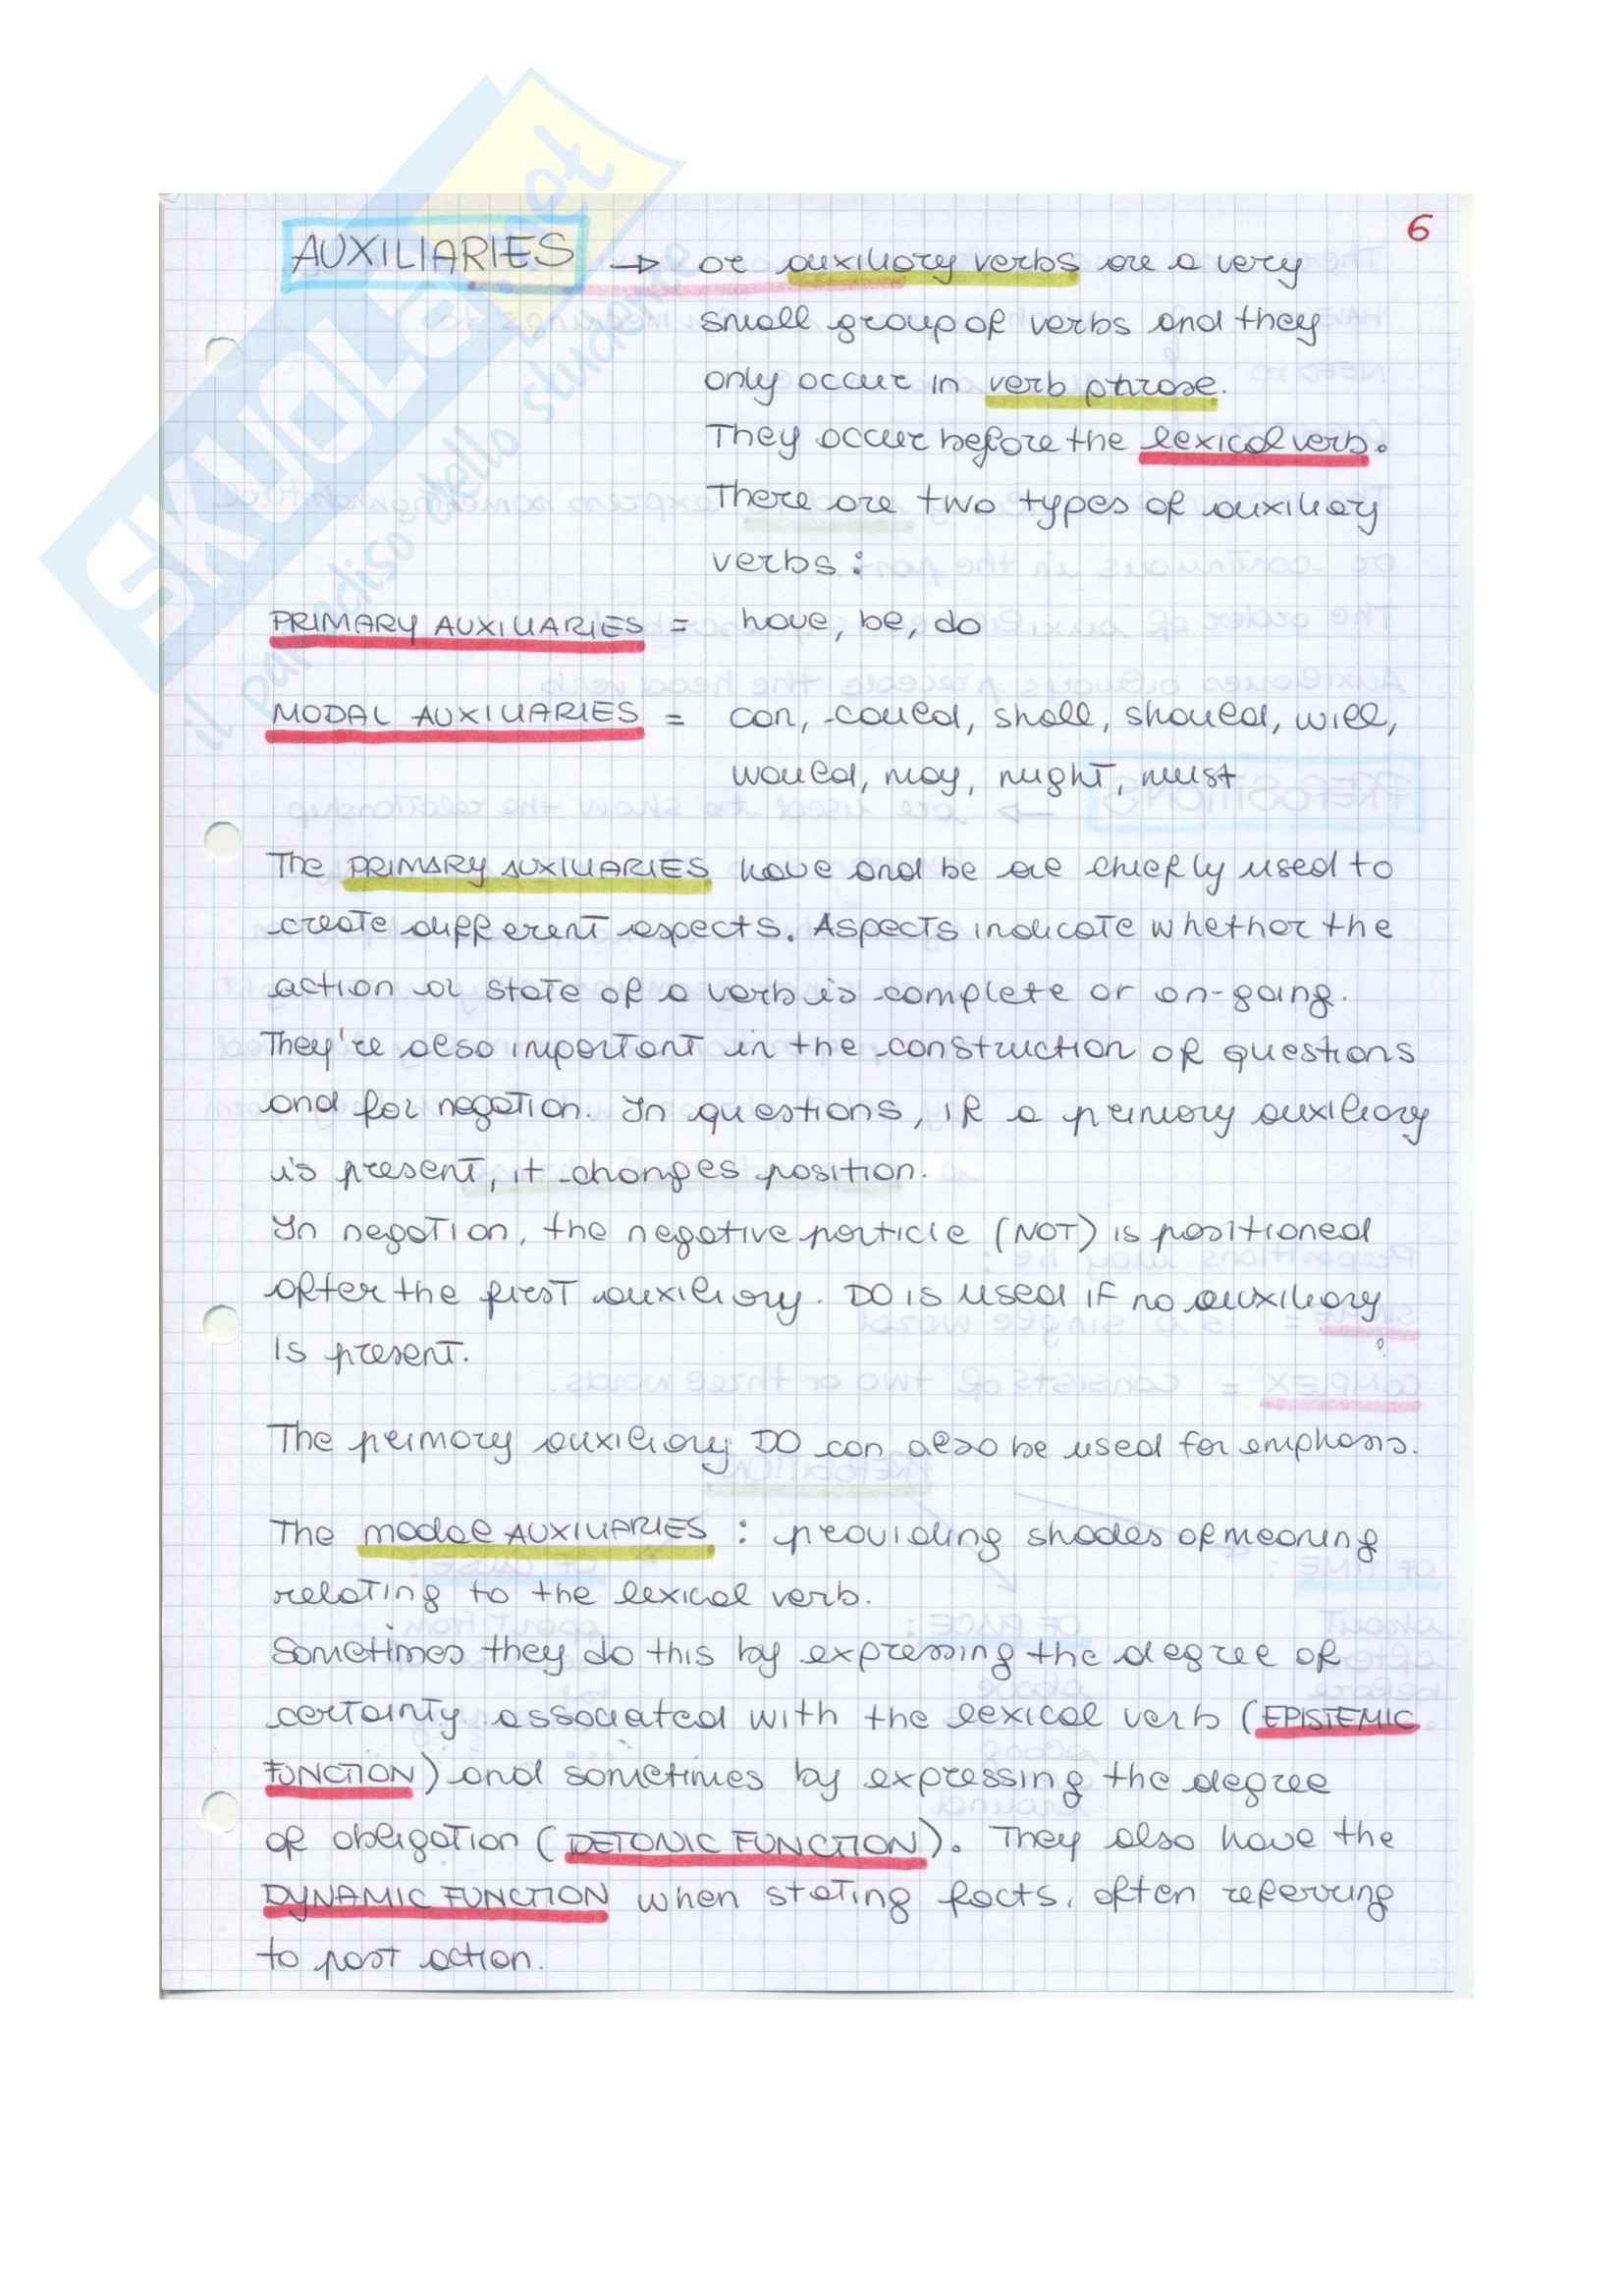 6
AUXILIARIES → or auxiliary verbs are a very
small group of verbs and they
only occur in verb phrase.
They occur before the lexical verb.
There are two types of auxiliary
verbs:
PRIMARY AUXILIARIES = have, be, do
MODAL AUXILIARIES = can, could, shall, should, will,
would, may, might, must
The PRIMARY AUXILIARIES have and be are chiefly used to
create different aspects. Aspects indicate whether the
action or state of a verb is complete or on-going.
They're also important in the construction of questions
and for negation. In questions, if a primary auxiliary
is present, it changes position.
In negation, the negative particle (NOT) is positioned
after the first auxiliary. DO is used if no auxiliary
is present.
The primary auxiliary DO can also be used for emphasis.
The modal AUXILIARIES: providing shades of meaning
relating to the lexical verb.
Sometimes they do this by expressing the degree of
certainty associated with the lexical verb (EPISTEMIC
FUNCTION) and sometimes by expressing the degree
of obligation (DETONIC FUNCTION). They also have the
DYNAMIC FUNCTION when stating facts, often referring
to past action.
SKUOLA.net
il paradiso dello studente